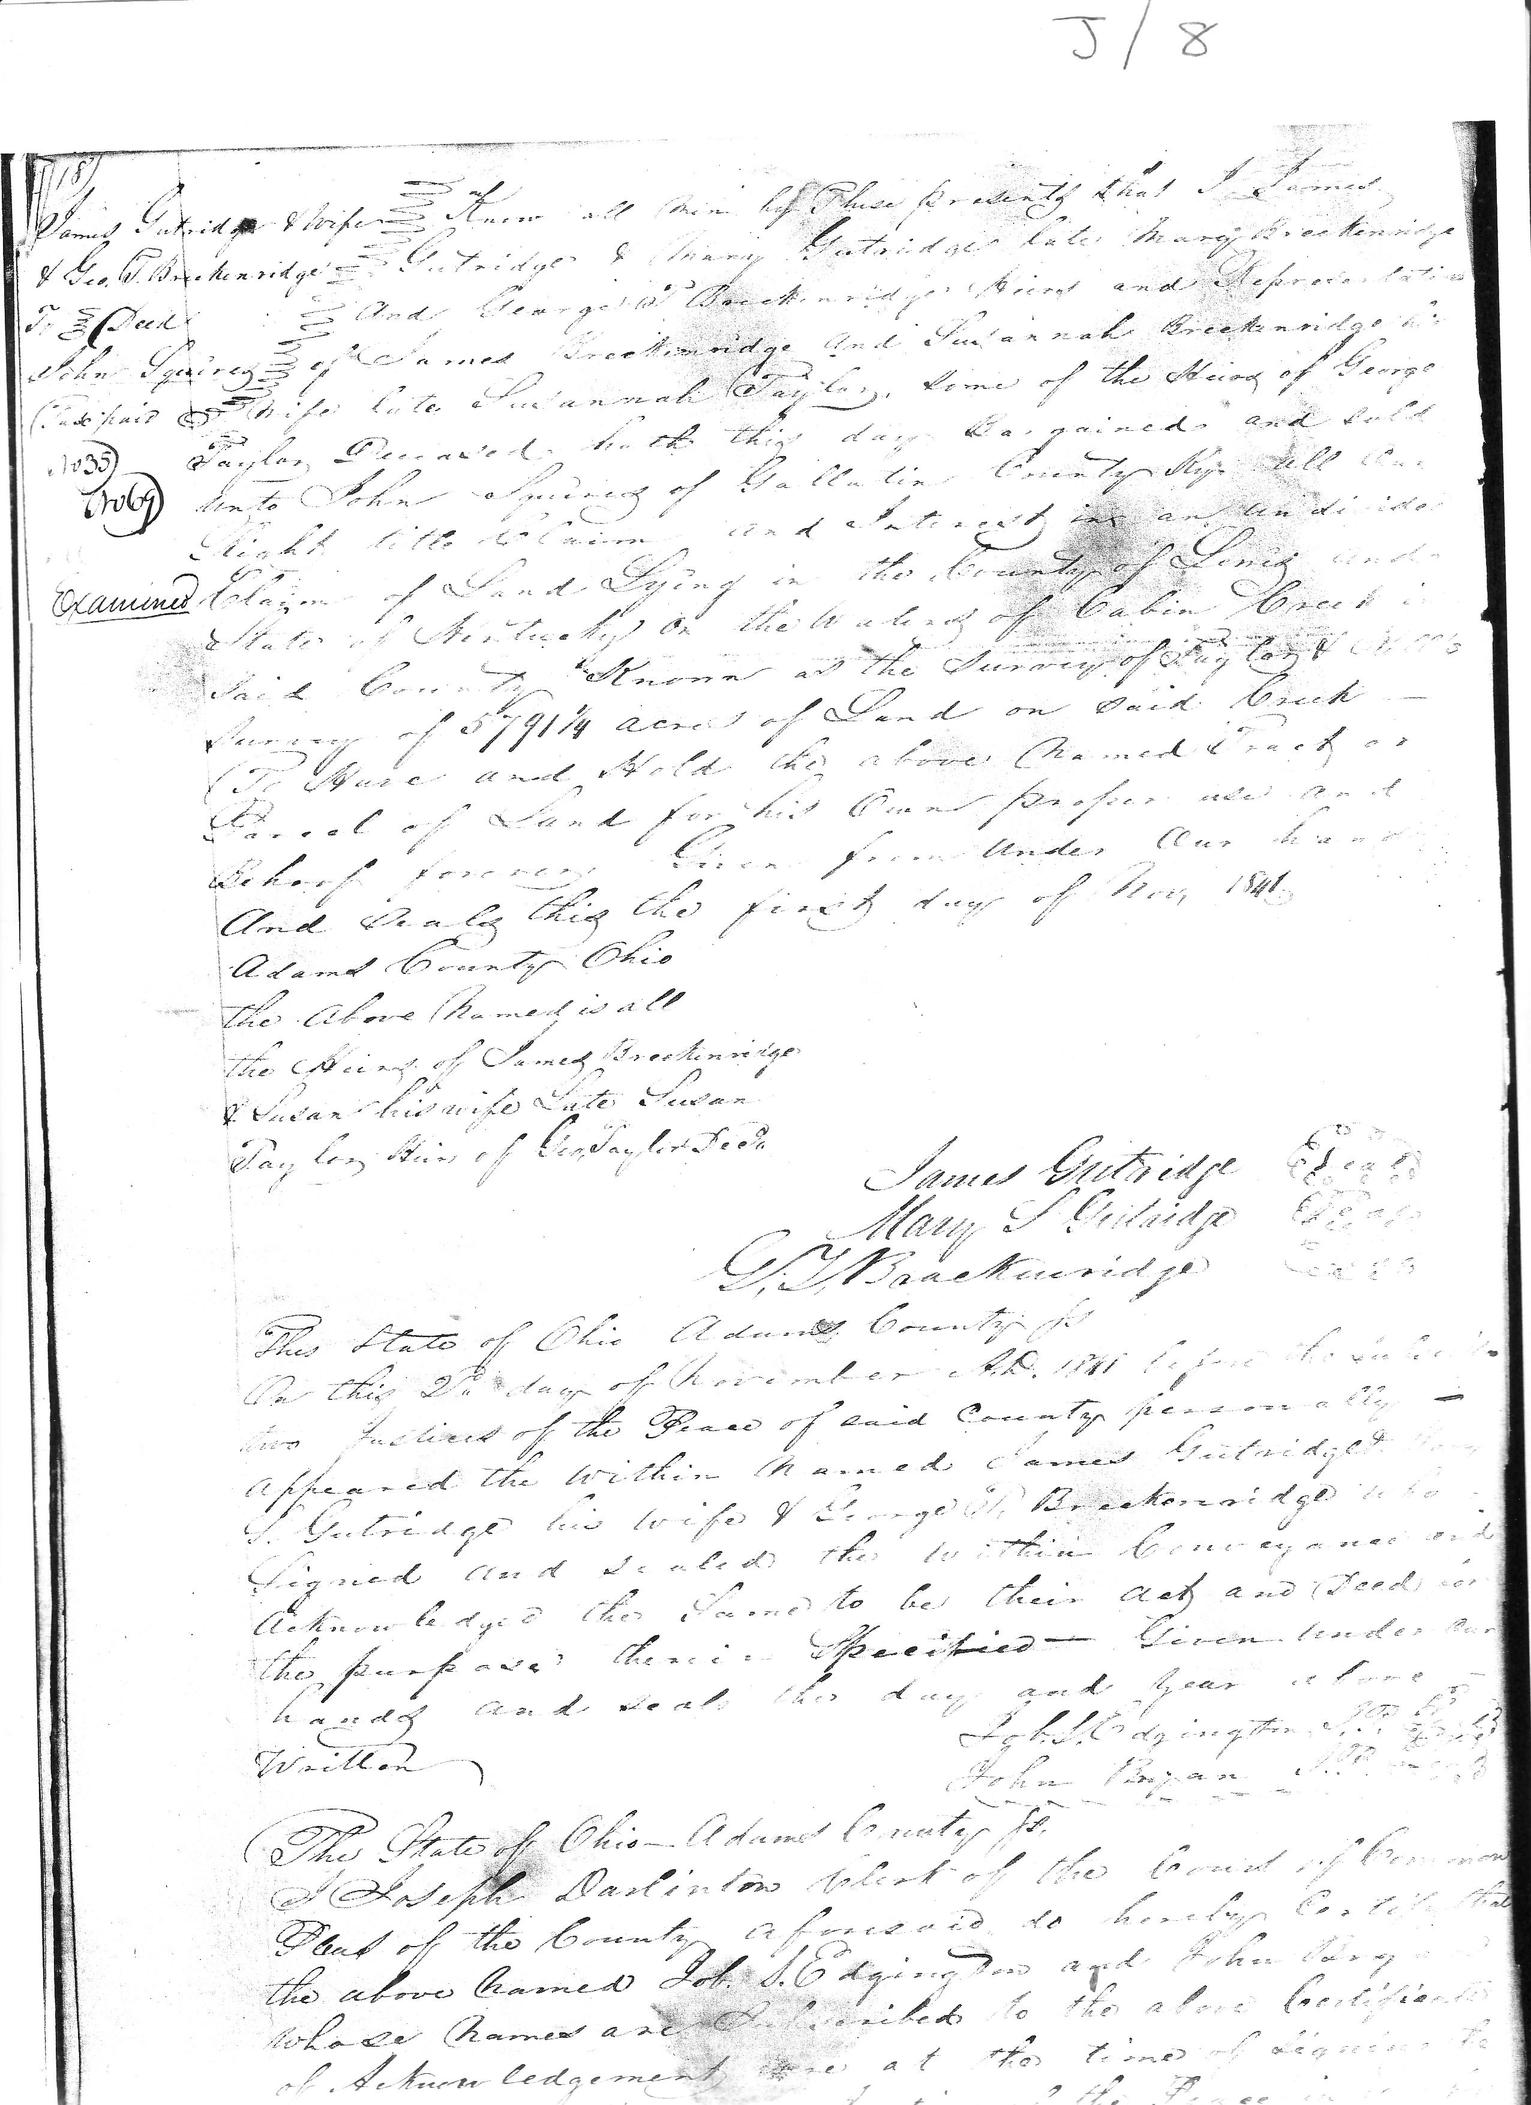 J/8
18
James Gutridge & Wife
& Geo. T. Breckenridge
To Deed
John Squires
(Tax paid
No 35
No 69
Examined
Know all men by These presents that I James
Gutridge & Mary Gutridge late Mary Breckenridge
And George T Breckenridge Heirs and Representatives
of James Breckenridge and Susannah Breckenridge his
wife late Susannah Taylor, some of the Heirs of George
Taylor Deceased hath this day Bargained and sold
unto John Squires of Gallatin County Ky. all our
Right title & Claim and Interest in an undivided
Claim of Land Lying in the County of Lewis and
State of Kentucky on the Waters of Cabin Creek in
said County Known as the survey of Taylor &
survey of 5791 1/4 acres of Land on said Creek
(To Have and Hold the above Named Tract or
Parcel of Land for his Own proper use and
Behoof forever Given from under our hands
And Seals this the first day of Nov, 1841
Adams County Ohio
the Above Named is all
the Heirs of James Breckenridge
& Susan his wife Late Susan
Taylor Heir of Geo, Taylor Decd
James Gutridge Seal
Mary S Gutridge Seal
G. T. Brackenridge Seal
The State of Ohio Adams County ss
On this 2d day of November A.D. 1841 before the
two Justices of the Peace of said County personally
appeared the within named James Gutridge &
S. Gutridge his wife & George T. Breckenridge who
Signed and sealed the within Conveyance and
Acknowledged the Same to be their act and Deed for
the purpose therein Specified — Given under our
hands and seals the day and year above
Written
Job. S. Edgington
John Bryan
The State of Ohio — Adams County ss.
I Joseph Darlinton Clerk of the Court of Common
Pleas of the County aforesaid do hereby Certify that
the above named Job. S. Edgington and John
whose names are Subscribed to the above Certificate
of Acknowledgement were at the time of signing the
the Peace in